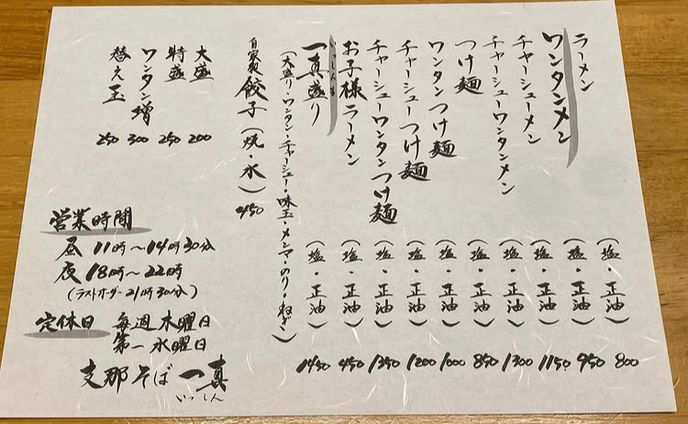 ラーメン(塩・正油)800
ワンタンメン(塩・正油)950
チャーシューメン(塩・正油)1150
チャーシューワンタンメン(塩・正油)1300
つけ麺(塩・正油)850
ワンタンつけ麺(塩・正油)1000
チャーシューつけ麺(塩・正油)1200
チャーシューワンタンつけ麺(塩・正油)1350
お子様ラーメン(塩・正油)450
いっしんもり
一真盛り(塩・正油)1450
(大盛り・ワンタン・チャーシュー・味玉・メンマ・のり・ねぎ)
自家製餃子(焼・水)450
大盛 200
特盛 250
ワンタン増 300
替え玉 250
営業時間
昼 11時〜14時30分
夜 18時〜22時
(ラストオーダー21時30分)
定休日 毎週木曜日
第一水曜日
支那そば一真
いっしん